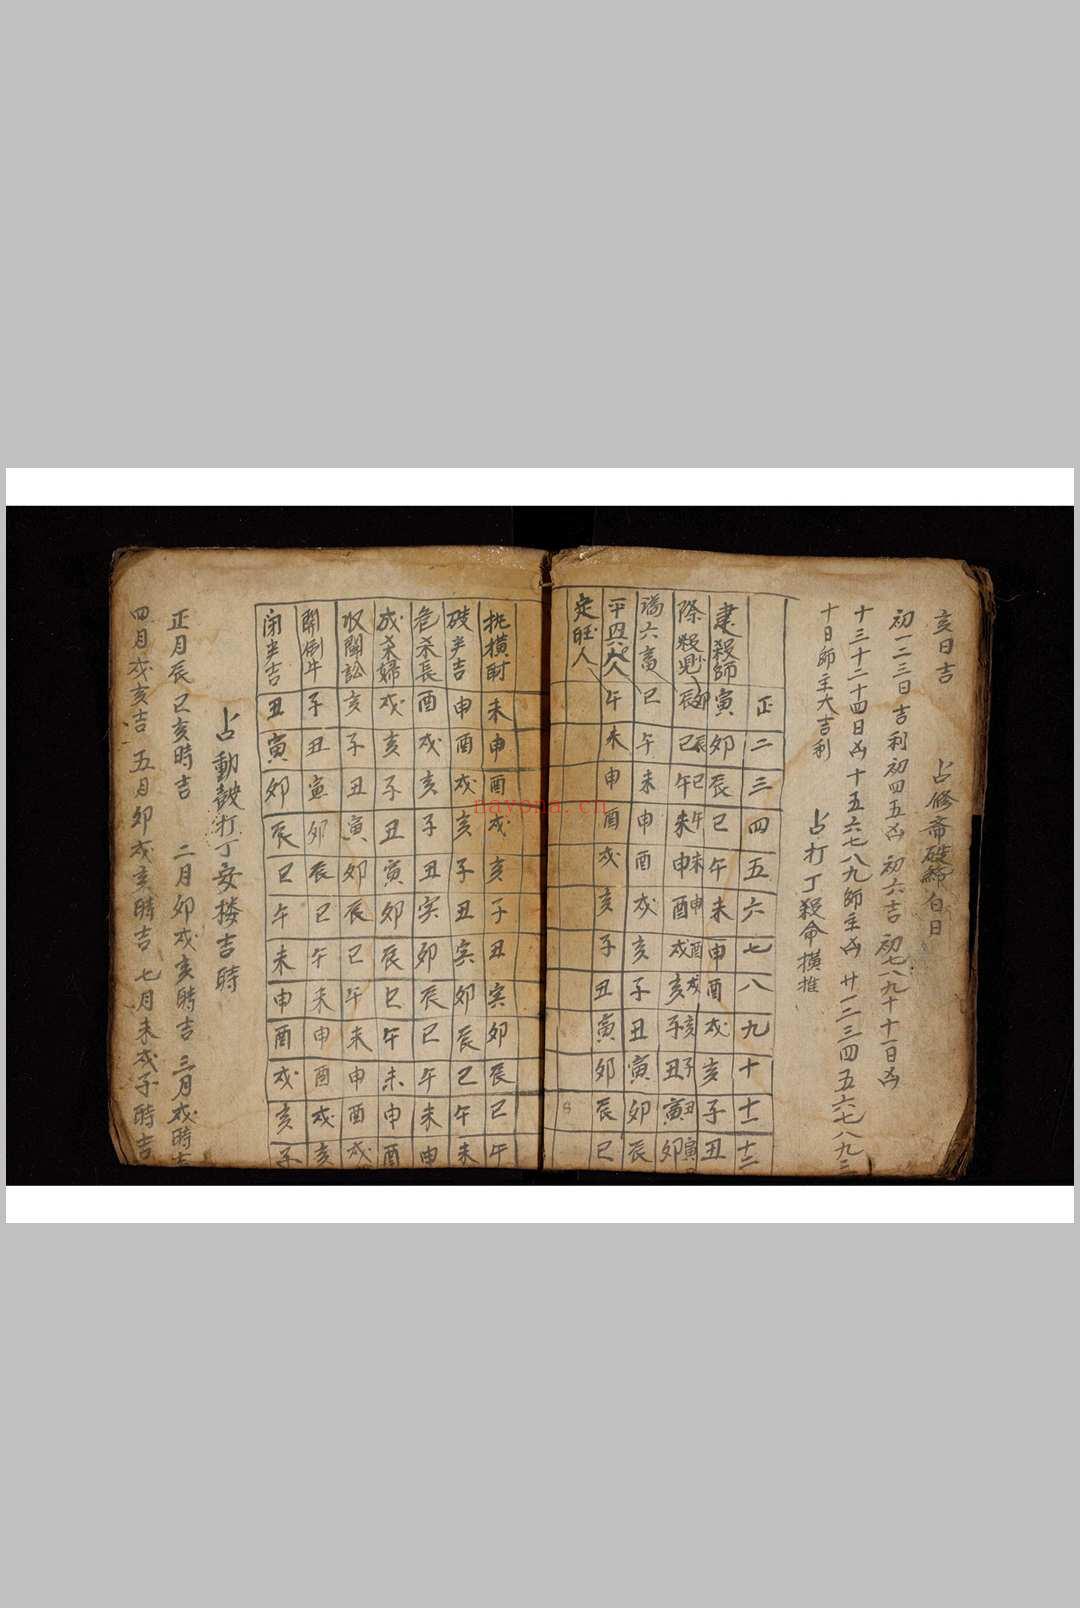 亥日吉 占修斋破 白日
初一二三日吉利初四五凶 初六吉 初七八九十十一日凶
十三十二十四日凶十五六七八九師主凶 廿一二三四五六七八九三
十日師主大吉利 占打丁殺命横推
正 二 三 四 五 六 七 八 九 十 十一 十二
建殺師 寅 卯 辰 巳 午 未 申 酉 戌 亥 子 丑
卯 辰 巳 午 未 申 酉 戌 亥 子 丑 寅
除殺 辰 巳 午 未 申 酉 戌 亥 子 丑 寅 卯
六畜 巳 午 未 申 酉 戌 亥 子 丑 寅 卯 辰
平 人 午 未 申 酉 戌 亥 子 丑 寅 卯 辰 巳
定旺人
横財 未 申 酉 戌 亥 子 丑 寅 卯 辰 巳 午
破半吉 申 酉 戌 亥 子 丑 寅 卯 辰 巳 午 未
危杀長 酉 戌 亥 子 丑 寅 卯 辰 巳 午 未 申
成杀婦 戌 亥 子 丑 寅 卯 辰 巳 午 未 申 酉
收鬪訟 亥 子 丑 寅 卯 辰 巳 午 未 申 酉 戌
開倒牛 子 丑 寅 卯 辰 巳 午 未 申 酉 戌 亥
闭半吉 丑 寅 卯 辰 巳 午 未 申 酉 戌 亥 子
占動鼓打丁安楼吉時
正月辰巳亥時吉 二月卯戌亥時吉 三月戌時吉
四月戌亥吉 五月卯戌亥時吉 七月未戌子時吉
nayona.cn